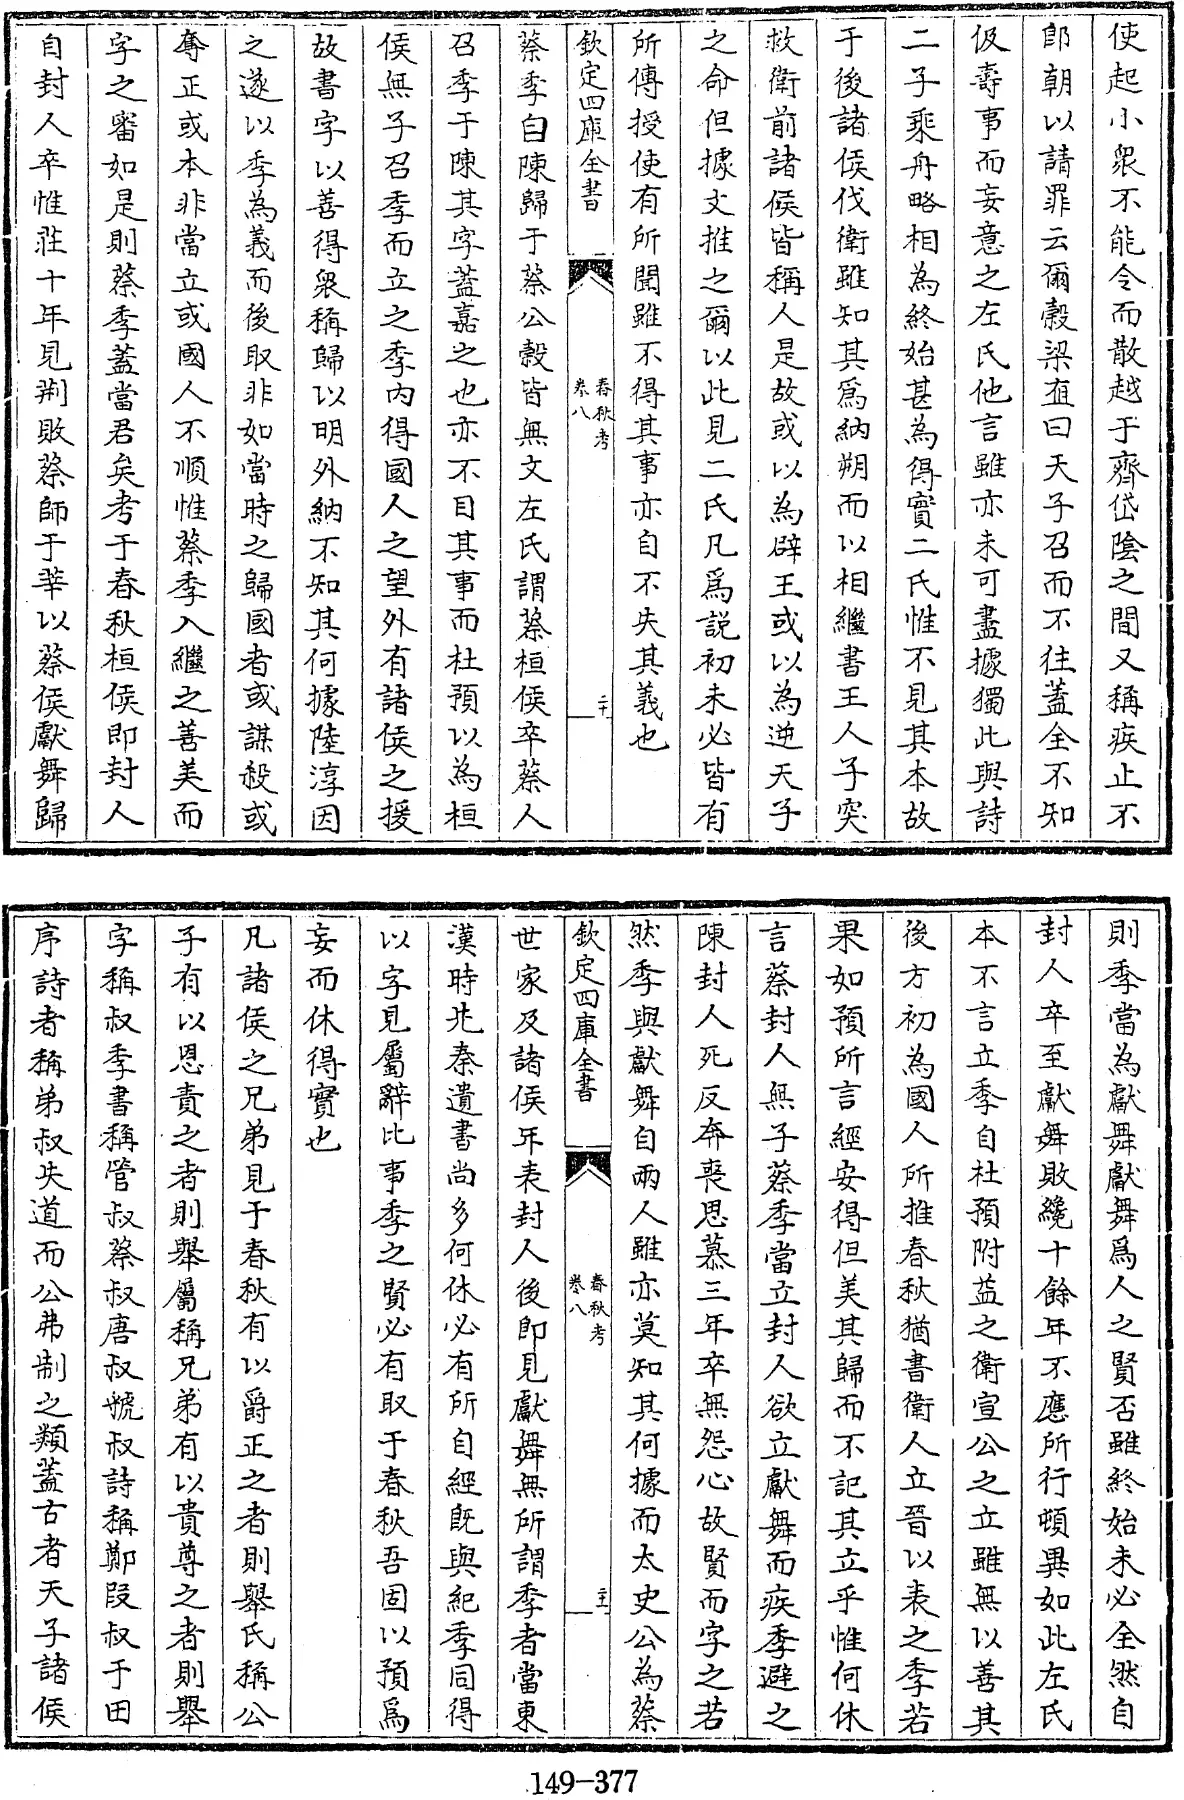 使起小衆不能令而散越于齊岱陰之間又稱疾止不
卽朝以請罪云爾穀梁直曰天子召而不往蓋全不知
伋壽事而妄意之左氏他言雖亦未可盡據獨此與詩
二子乘舟略相為終始甚為得實二氏惟不見其本故
于後諸侯伐衛雖知其爲納朔而以相繼書王人子突
救衛前諸侯皆稱人是故或以為辟王或以為逆天子
之命但據文推之爾以此見二氏凡爲説初未必皆有
所傳授使有所聞雖不得其事亦自不失其義也
欽定四庫全書
春秋考
卷八
二十
蔡季自陳歸于蔡公穀皆無文左氏謂蔡桓侯卒蔡人
召季于陳其字蓋嘉之也亦不目其事而杜預以為桓
侯無子召季而立之季内得國人之望外有諸侯之援
故書字以善得衆稱歸以明外納不知其何據陸淳因
之遂以季為義而後取非如當時之歸國者或謀殺或
奪正或本非當立或國人不順惟蔡季入繼之善美而
字之審如是則蔡季蓋當君矣考于春秋桓侯即封人
自封人卒惟莊十年見荆敗蔡師于莘以蔡侯獻舞歸
則季當為獻舞獻舞爲人之賢否雖終始未必全然自
封人卒至獻舞敗纔十餘年不應所行頓異如此左氏
本不言立季自杜預附益之衛宣公之立雖無以善其
後方初為國人所推春秋猶書衛人立晉以表之季若
果如預所言經安得但美其歸而不記其立乎惟何休
言蔡封人無子蔡季當立封人欲立獻舞而疾季避之
陳封人死反奔喪思慕三年卒無怨心故賢而字之若
然季與獻舞自兩人雖亦莫知其何據而太史公為蔡
欽定四庫全書
春秋考
卷八
二十一
世家及諸侯年表封人後即見獻舞無所謂季者當東
漢時先秦遺書尚多何休必有所自經既與紀季同得
以字見屬辭比事季之賢必有取于春秋吾固以預爲
妄而休得實也
凡諸侯之兄弟見于春秋有以爵正之者則舉氏稱公
子有以恩責之者則舉屬稱兄弟有以貴尊之者則舉
字稱叔季書稱管叔蔡叔唐叔虢叔詩稱鄭段叔于田
序詩者稱弟叔失道而公弗制之類蓋古者天子諸侯
149-377